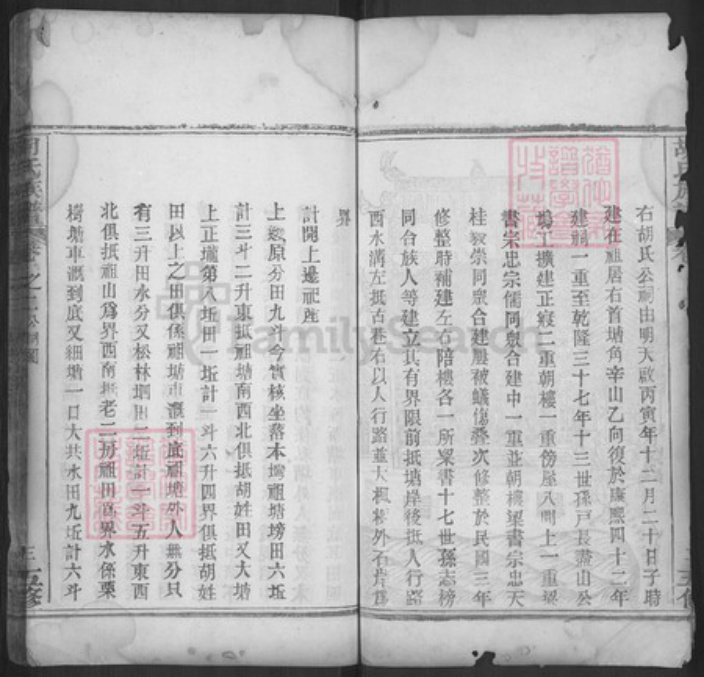 右胡氏公祠由明天啟丙寅年十二月二十日子時
建在祖居右首塘角辛山乙向復於康熙四十二年
建嗣一重至乾隆三十七年十三世孫戶長藎山公
鳩工擴建正寢二重朝樓一重傍屋八間上一重梁
書宗忠宗儒同衆合建中一重並朝樓梁書宗忠天
桂毅崇同衆合建嚴被蟻傷叠次修整於民國三年
修整時補建左右陪樓各一所梁書十七世孫志榜
同合族人等建立其有界限前抵塘岸後抵人行路
西水溝左抵古巷右以人行路並大楓樹外石岸為
界
計開上邊祀產
上嫂原分田九斗今實核坐落本塆祖塘塝田六坵
計三斗二升東抵祖塘南西北俱抵胡姓田又大塘
上正壠第八坵田一坵計一斗六升四界俱抵胡姓
田以上之田俱係祖塘車溉到底祖塘外人無分只
有三升田水分又松林垇田二坵計一斗五升東西
北俱抵祖山為界西南抵老二房祖田為界水係栗
樹塘車溉到底又細塘一口大共水田九坵計六斗
胡氏族譜
卷之二 公祠圖
三 五修
FamilySearch